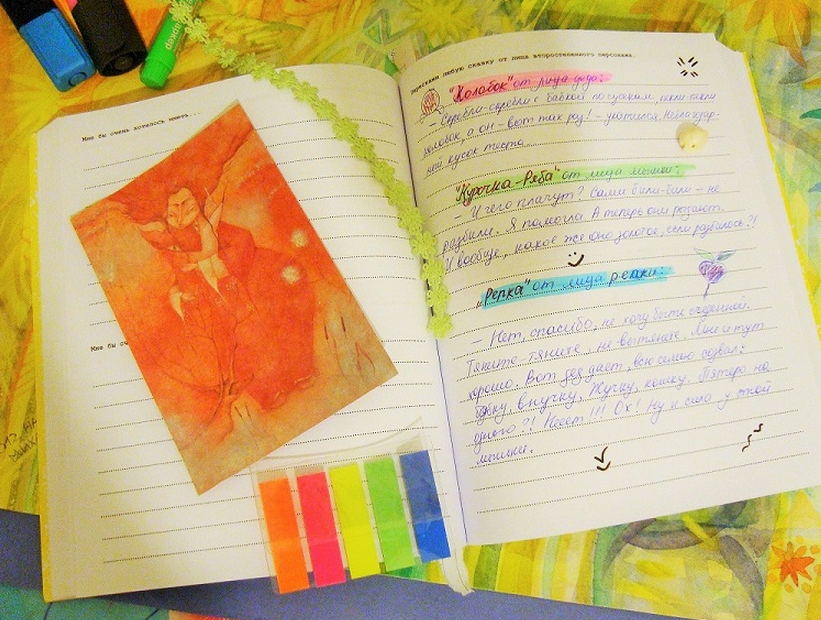 маркер
Мне бы очень хотелось иметь...
Мне бы оч
Перескажи любую сказку от лица второстепенного персонажа.
"Колобок" от лица деда:
Скребли-скребли с бабкой по сусекам, пекли-пекли
колобок, а он – вот так раз! – укатился. Неблагодар-
ный кусок теста.
"Курочка-Ряба" от лица мышки:
– И чего плачут? Сами били-били – не
разбили. Я помогла. А теперь они рыдают.
И вообще, какое же оно золотое, если разбилось?!
"Репка" от лица репки:
– Нет, спасибо, не хочу быть съеденной.
Тяните-тяните, не вытяните. Мне и тут
хорошо. Вот дед дает, всю семью созвал:
бабку, внучку, Жучку, кошку. Пятеро на
одного?! Несет!!! Ох! Ну и сила у этой
мышки.